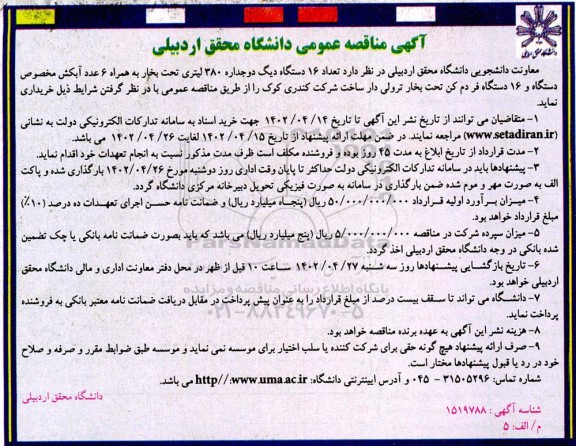 آگهی مناقصه عمومی دانشگاه محقق اردبیلی
معاونت دانشجویی دانشگاه محقق اردبیلی در نظر دارد تعداد ۱۶ دستگاه دیگ دوجداره ۳۸۰ لیتری تحت بخار به همراه ۶ عدد آبکش مخصوص
دستگاه و ۱۶ دستگاه فر دم کن تحت بخار ترولی دار ساخت شرکت کندری کوک را از طریق مناقصه عمومی با در نظر گرفتن شرایط ذیل خریداری
نماید.
۱- متقاضیان می توانند از تاریخ نشر این آگهی تا تاریخ ۱۴۰۲/۰۴/۱۴ جهت خرید اسناد به سامانه تدارکات الکترونیکی دولت به نشانی
(www.setadiran.ir) مراجعه نمایند. در ضمن مهلت ارائه پیشنهاد از تاریخ ۱۴۰۲/۰۴/۱۵ لغایت ۱۴۰۲/۰۴/۲۶ می باشد.
۲- مدت قرارداد از تاریخ ابلاغ به مدت ۴۵ روز بوده و فروشنده مکلف است ظرف مدت مذکور نسبت به انجام تعهدات خود اقدام نماید.
۳- پیشنهادها باید در سامانه تدارکات الکترونیکی دولت حداکثر تا پایان وقت اداری روز دوشنبه مورخ ۱۴۰۲/۰۴/۲۶ بارگذاری شده و پاکت
الف به صورت مهر و موم شده ضمن بارگذاری در سامانه به صورت فیزیکی تحویل دبیرخانه مرکزی دانشگاه گردد.
۴- میزان برآورد اولیه قرارداد ۵۰/۰۰۰/۰۰۰/۰۰۰ ریال (پنجاه میلیارد ریال) و ضمانت نامه حسن اجرای تعهدات ده درصد (۱۰٪)
مبلغ قرارداد خواهد بود.
۵- میزان سپرده شرکت در مناقصه ۵/۰۰۰/۰۰۰/۰۰۰ ریال (پنج میلیارد ریال) می باشد که باید بصورت ضمانت نامه بانکی یا چک تضمین
شده بانکی در وجه دانشگاه محقق اردبیلی اخذ گردد.
۶- تاریخ بازگشایی پیشنهادها روز سه شنبه ۱۴۰۲/۰۴/۲۷ ساعت ۱۰ قبل از ظهر در محل دفتر معاونت اداری و مالی دانشگاه محقق
اردبیلی خواهد بود.
۷- دانشگاه می تواند تا سقف بیست درصد از مبلغ قرارداد را به عنوان پیش پرداخت در مقابل دریافت ضمانت نامه معتبر بانکی به فروشنده
پرداخت نماید.
۸- هزینه نشر این آگهی به عهده برنده مناقصه خواهد بود.
۹- صرف ارائه پیشنهاد هیچ گونه حقی برای شرکت کننده یا سلب اختیار برای موسسه نمی نماید و موسسه طبق ضوابط مقرر و صرفه و صلاح
خود در رد یا قبول پیشنهادها مختار است.
شماره تماس: ۳۱۵۰۵۲۹۶ - ۰۴۵ و آدرس اینترنتی دانشگاه: http//:www.uma.ac.ir می باشد.
دانشگاه محقق اردبیلی
شناسه آگهی : ۱۵۱۹۷۸۸
م / الف: ۵
ParsNamadData
پایگاه اطلاع رسانی مناقصه و مزایده
۰۲۱-۸۸۳۴۹۶۷۰-۵